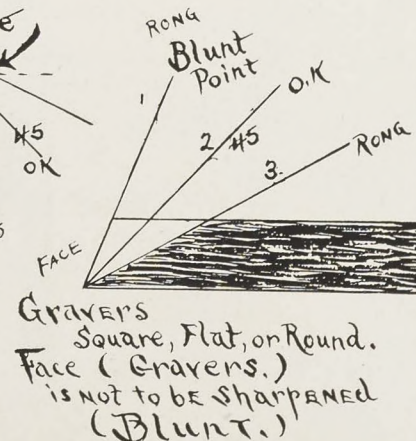 e
RONG
Blunt
Point
1
O.K
2 45
RONG
3.
45
OK
FACE
Gravers
Square, Flat, or Round.
Face (Gravers.)
is not to be sharpened
(Blunt.)